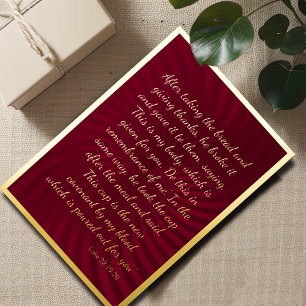 After taking the bread and
giving thanks, he broke it
and gave it to them, saying,
This is my body, which is
given for you. Do this in
remembrance of me. In the
same way, he took the cup
after the meal and said,
This cup is the new
covenant by my blood,
which is poured out for you
Luke 22:19-20